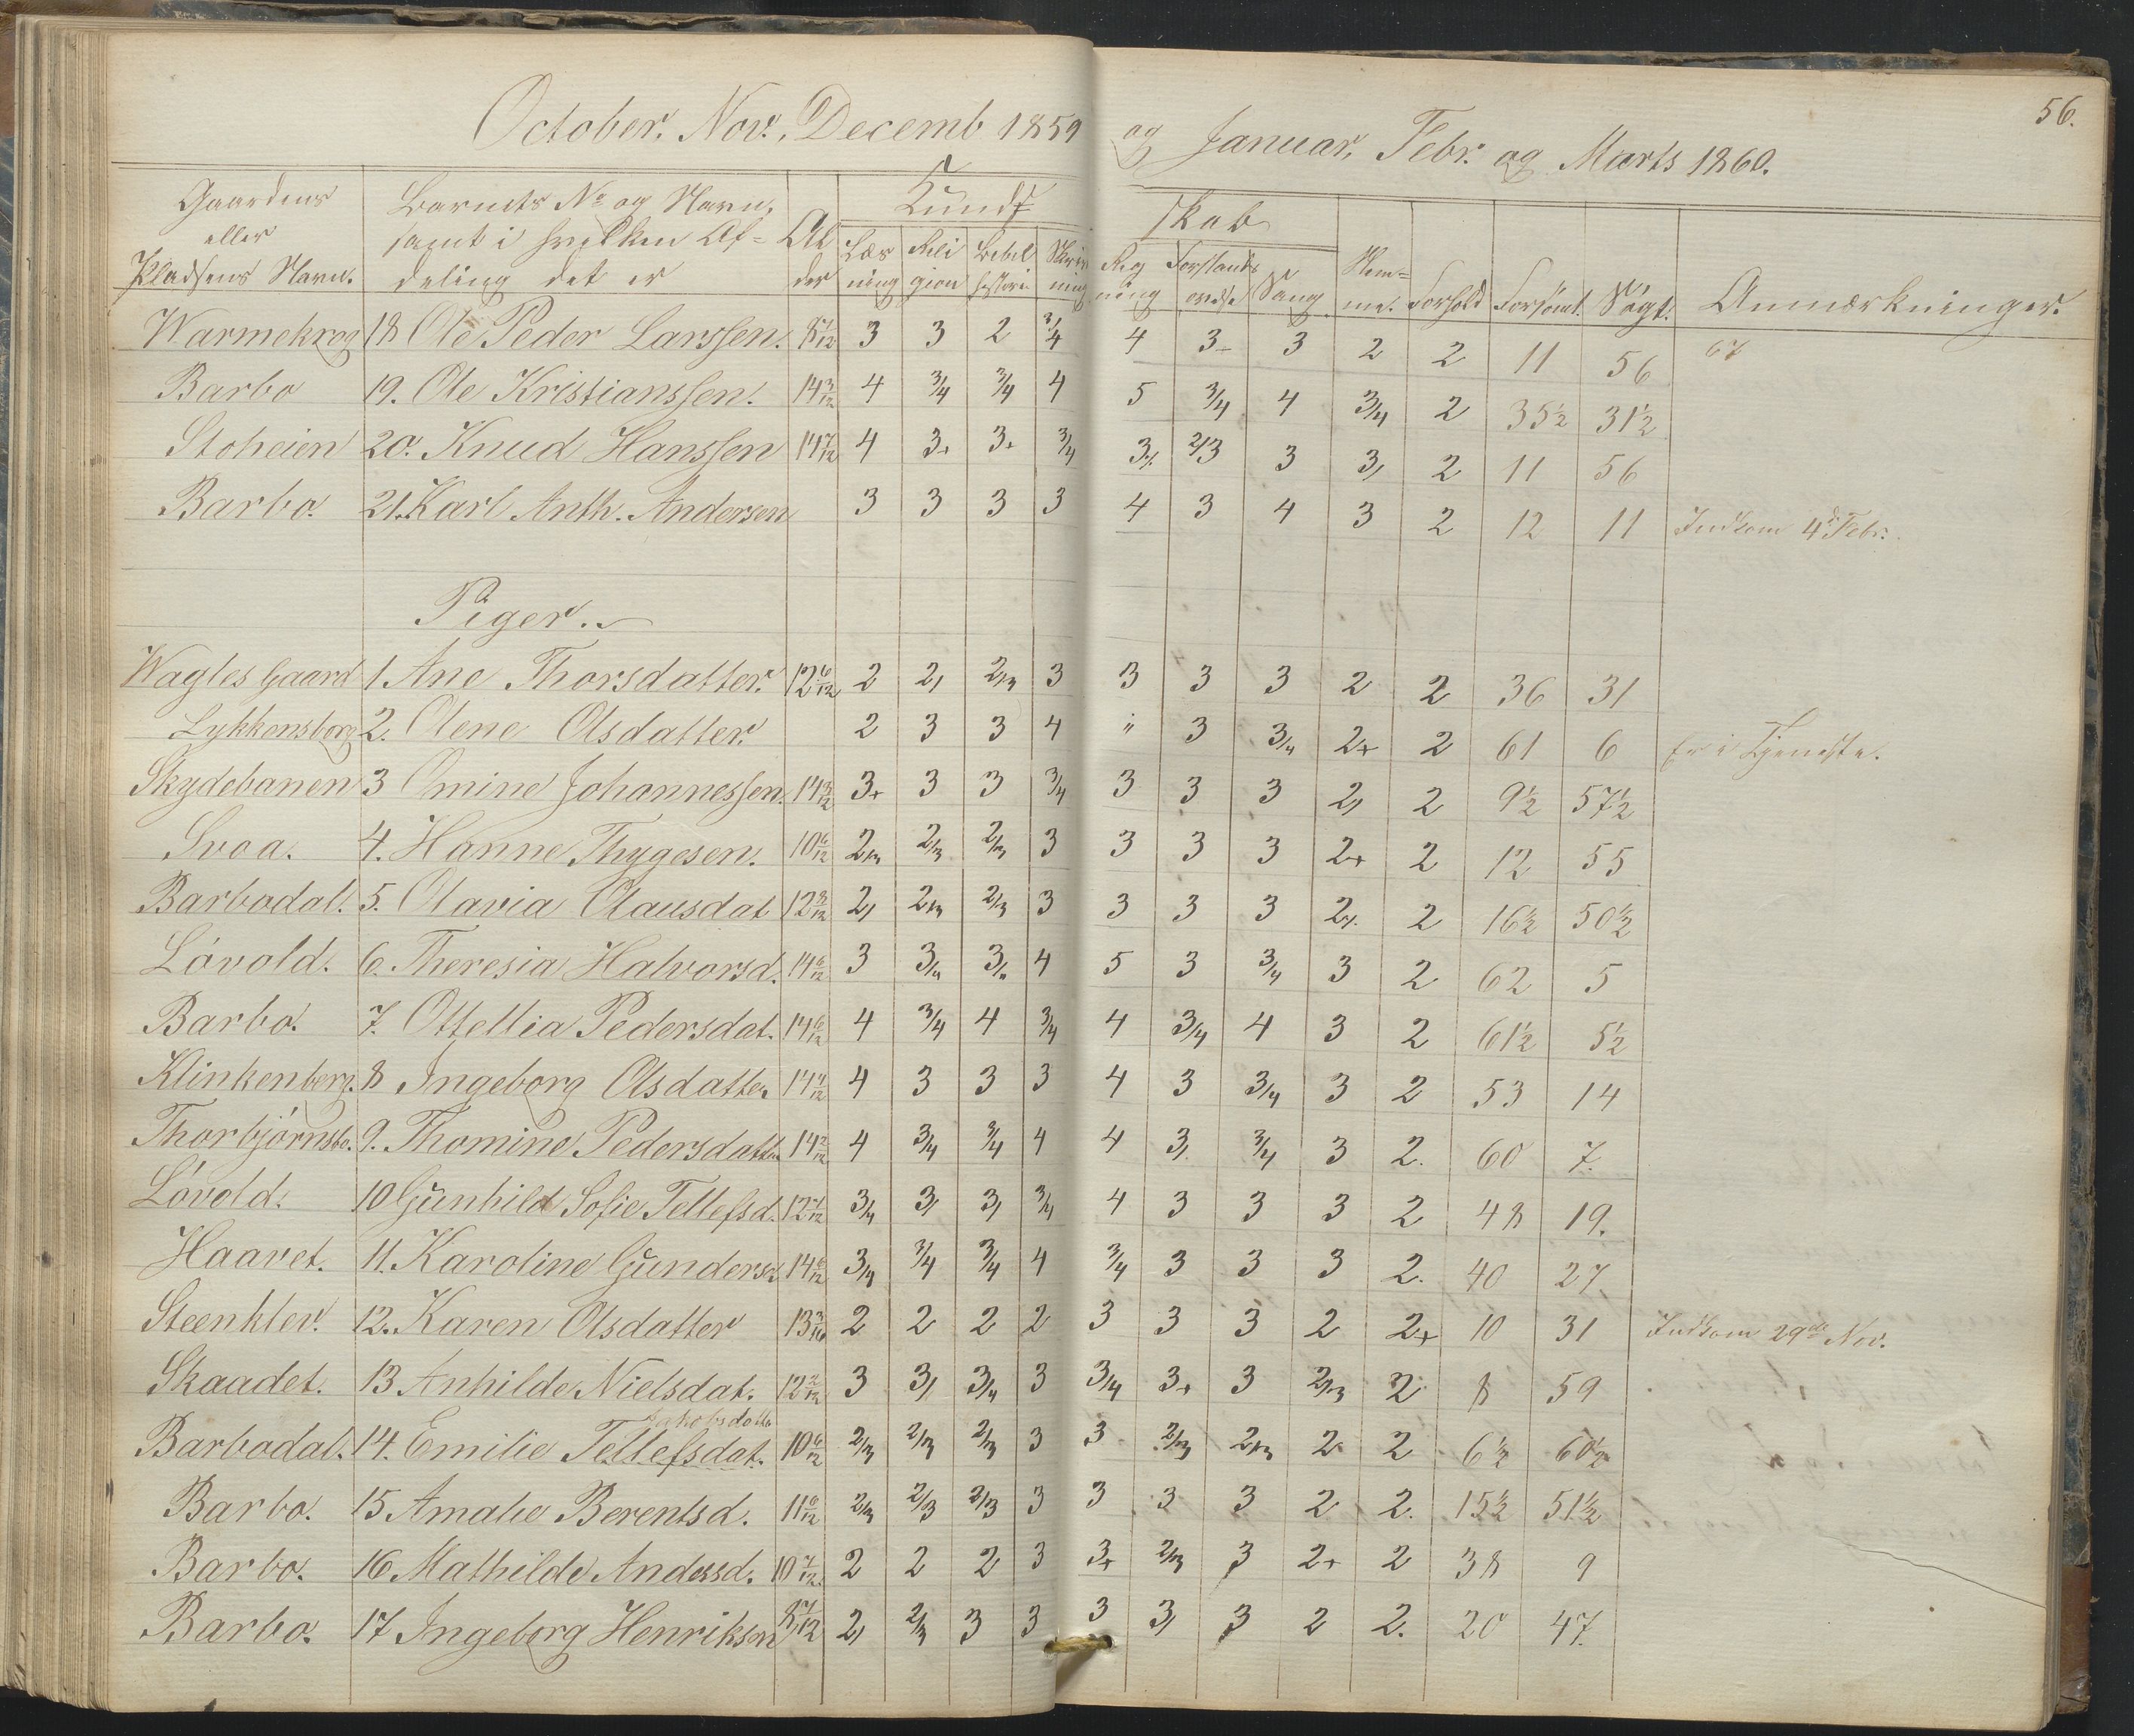 56.
October. Nov. Decemb 1859 og Januar, Febr. og Marts 1860.
Gaardens eller Pladsens Navn. Barnets No og Navn, samt i hvilken Afdeling det er Alder Kundskab Læsning Religion Bibelhistorie Skrivning Regning Forstandsøvelse Sang Hukommelse Forhold Forsømt. Søgt. Anmærkninger.
Warmekrog 18 Ole Peder Larssen. 8 7/12 3 3 2 3/4 4 3- 3 2 2 11 56 67
Barbo 19. Ole Kristianssen. 14 3/12 4 3/4 3/4 4 5 3/4 4 3/4 2 35½ 31½
Stoheien 20. Knud Hanssen 14 7/12 4 3+ 3+ 3/4 3/. 2/3 3 3/ 2 11 56
Barbo. 21. Karl Anth. Andersen 3 3 3 3 4 3 4 3 2 12 11 Indkom 4de Febr.
Piger.
Wagles Gaard 1. Ane Thorsdatter. 12 6/12 2 2/ 2/3 3 3 3 3 2 2 36 31
Lykkensborg 2. Olene Olsdatter. 2 3 3 4 " 3 3/4 2+ 2 61 6 Er i Tjeneste.
Skydebanen 3 Omine Johannessen. 14 3/12 3+ 3 3 3/4 3 3 3 2/ 2 9½ 57½
Svoa. 4. Hanne Thygesen. 10 6/12 2/3 2/3 2/3 3 3 3 3 2+ 2 12 55
Barbodal. 5. Olavia Olausdat 12 3/12 2/ 2/3 2/3 3 3 3 3 2/. 2 16½ 50½
Lóvold. 6. Theresia Halvorsd. 14 6/12 3 3/4 3/4 4 5 3 3/4 3 2 62 5
Barbo. 7. Ottellia Pedersdat. 14 6/12 4 3/4 4 3/4 4 3/4 4 3 2 61½ 5½
Klinkenberg. 8 Ingeborg Olsdatter 14 4/12 4 3 3 3 4 3 3/4 3 2 53 14
Thorbjórnsbo. 9. Thomine Pedersdatter 14 2/12 4 3/4 3/4 4 4 3/. 3/4 3 2. 60 7.
Lóvold. 10 Gunhild Sofie Tellefsd. 12 7/12 3/4 3/ 3/ 3/4 4 3 3 3 2 48 19.
Haavet. 11. Karoline Gundersd 14 6/12 3/4 3/4 3/4 4 3/4 3 3 3 2. 40 27.
Steenklev. 12. Karen Olsdatter 13 2 2 2 2 3 3 3 2 2+ 10 31 Indkom 29de Nov.
Skaadet. 13 Anhilde Nielsdat. 12 2/12 3 3/ 3/4 3 3/4 3+ 3 2/3 2 8 59
Jakobsdatter
Barbodal. 14. Emilie Tellefsdat. 10 6/12 2/3 2/3 2/3 3 3 2/3 2/3 2 2 6½ 60½
Barbo. 15. Amalie Berentsd. 11 6/12 2/3 2/3 2/3 3 3 3 3 2 2. 15½ 51½
Barbo. 16. Mathilde Andersd. 10 7/12 2 2 2 3 3+ 2/3 3 2+ 2 38 9
Barbo. 17 Ingeborg Henriksen 8 7/12 2/ 2/3 3 3 3 3/ 3 2 2. 20 47.